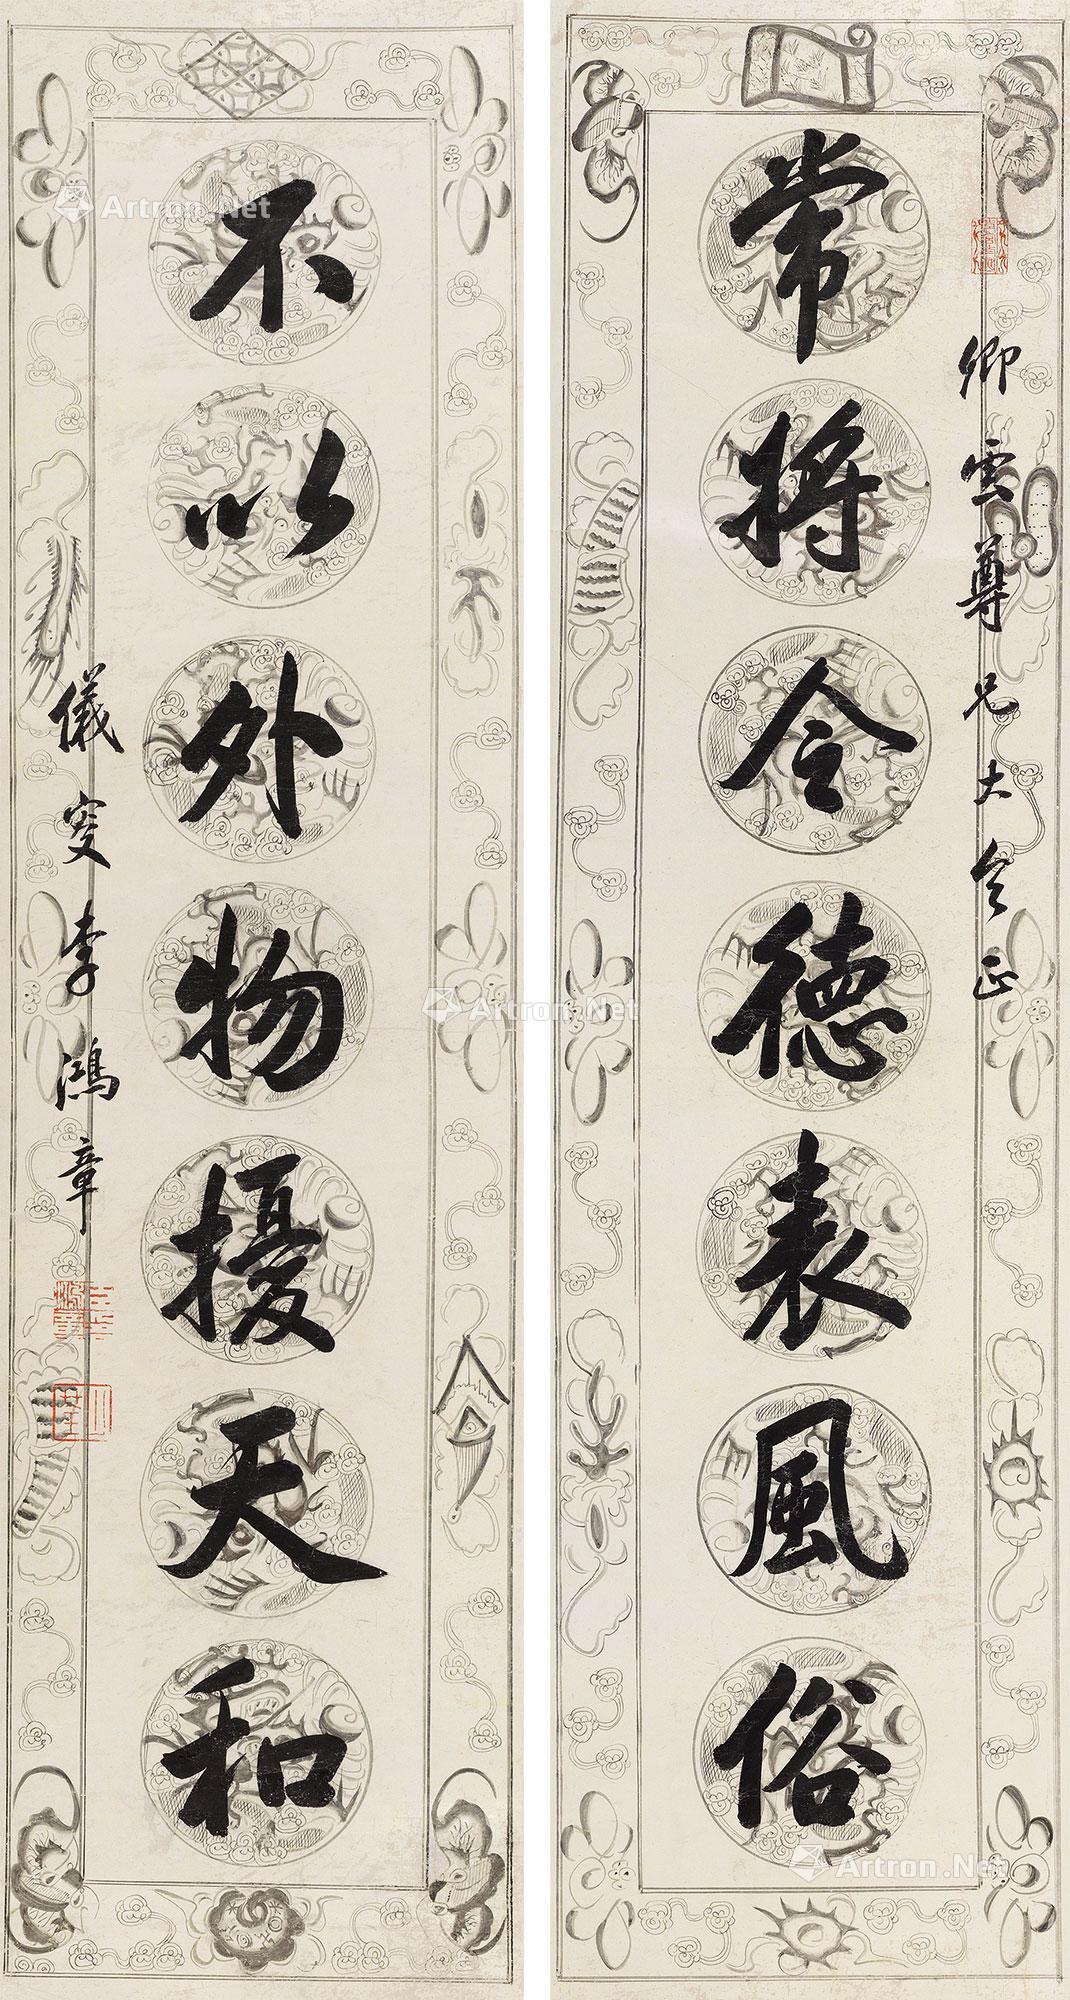 卿雲尊兄大令正
常將令德表風俗
不以外物擾天和
儀叟李鴻章
Artron.Net
Artron.Net
Artron.Net